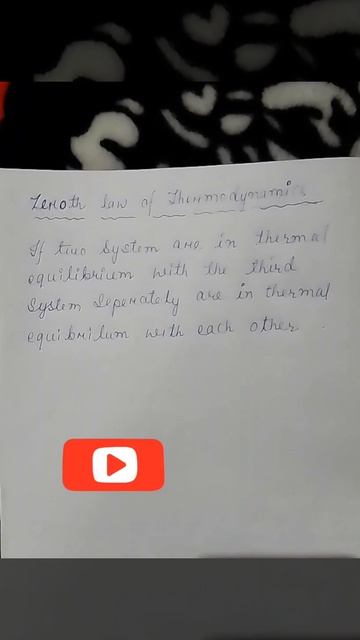 Zeroth law of Thermodynamics
If two System are in thermal
equilibrium with the third
System Seperately are in thermal
equibrilum with each other.